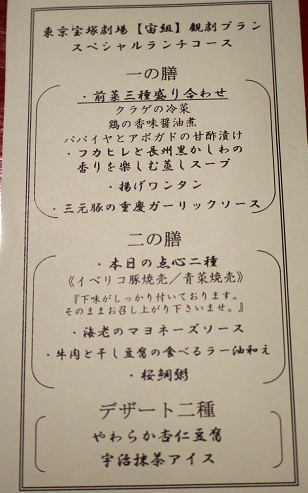 東京宝塚劇場【宙組】観劇プラン
スペシャルランチコース
一の膳
・前菜三種盛り合わせ
クラゲの冷菜
鶏の香味醤油煮
パパイヤとアボガドの甘酢漬け
・フカヒレと長州黒かしわの
香りを楽しむ蒸しスープ
・揚げワンタン
・三元豚の重慶ガーリックソース
二の膳
・本日の点心二種
《イベリコ豚焼売／青菜焼売》
『下味がしっかり付いております。
そのままお召し上がり下さいませ。』
・海老のマヨネーズソース
・牛肉と干し豆腐の食べるラー油和え
・桜鯛粥
デザート二種
やわらか杏仁豆腐
宇治抹茶アイス